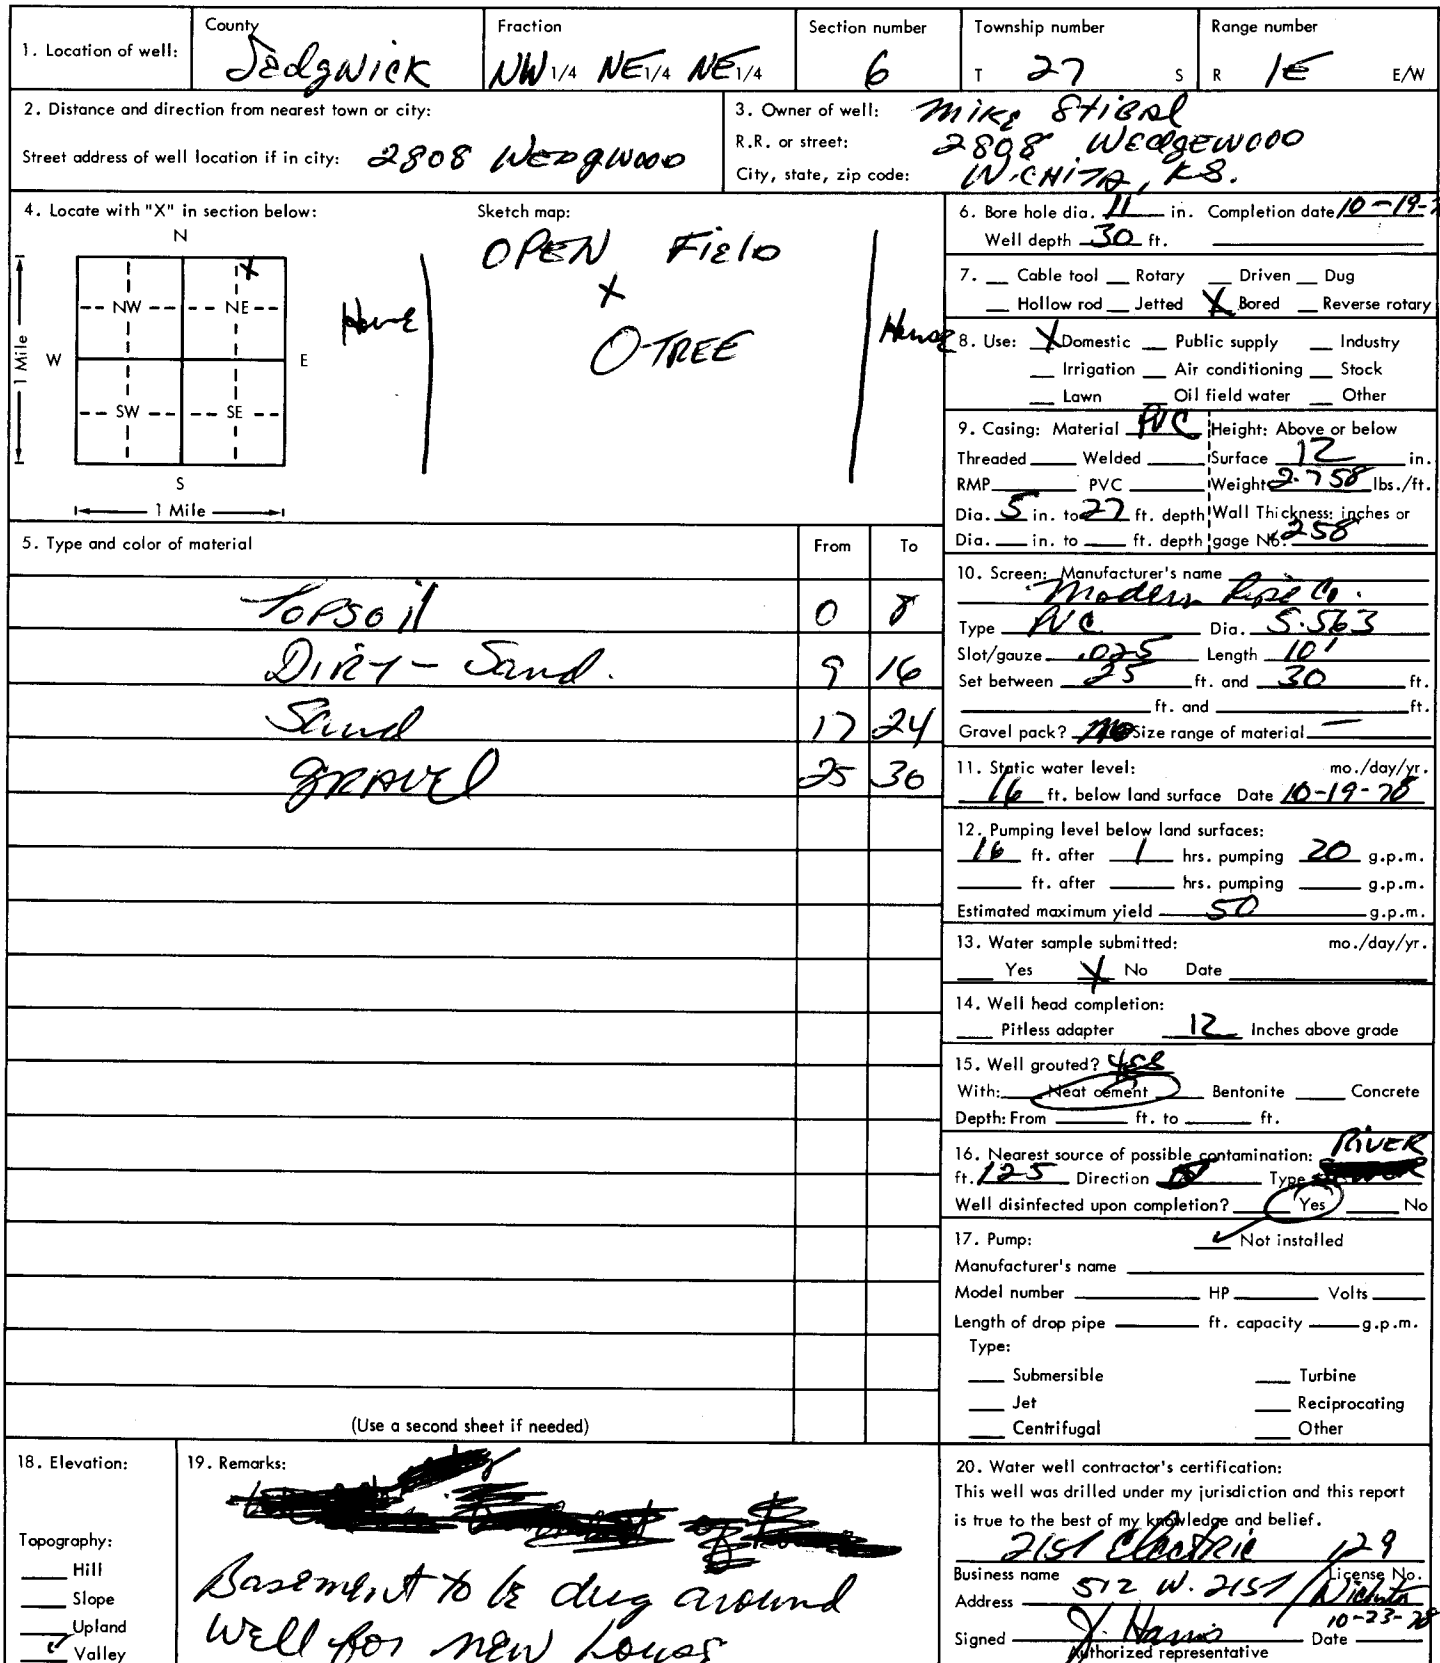 County Fraction Section number Township number Range number
1. Location of well: Sedgwick NW 1/4 NE 1/4 NE 1/4 6 T 27 S R 1E E/W
2. Distance and direction from nearest town or city:
Street address of well location if in city: 2808 Wedgwood
3. Owner of well: Mike Stibal
R.R. or street: 2808 Wedgewood
City, state, zip code: Wichita, KS.
4. Locate with "X" in section below:
Sketch map:
N
X
NW NE
W E
SW SE
S
1 Mile
1 Mile
OPEN Field
X
O-TREE
Home
House
5. Type and color of material From To
Topsoil 0 8
Dirty-Sand. 9 16
Sand 17 24
gravel 25 30
(Use a second sheet if needed)
6. Bore hole dia. 11 in. Completion date 10-19-7
Well depth 30 ft.
7. Cable tool Rotary Driven Dug
Hollow rod Jetted X Bored Reverse rotary
8. Use: X Domestic Public supply Industry
Irrigation Air conditioning Stock
Lawn Oil field water Other
9. Casing: Material PVC Height: Above or below
Threaded Welded Surface 12 in.
RMP PVC Weight 2.758 lbs./ft.
Dia. 5 in. to 27 ft. depth Wall Thickness: inches or
Dia. in. to ft. depth gage No. .258
10. Screen: Manufacturer's name
Modern Pipe Co.
Type PVC Dia. 5.563
Slot/gauze .025 Length 10'
Set between 25 ft. and 30 ft.
ft. and ft.
Gravel pack? No Size range of material —
11. Static water level: mo./day/yr.
16 ft. below land surface Date 10-19-78
12. Pumping level below land surfaces:
16 ft. after 1 hrs. pumping 20 g.p.m.
ft. after hrs. pumping g.p.m.
Estimated maximum yield 50 g.p.m.
13. Water sample submitted: mo./day/yr.
Yes X No Date
14. Well head completion:
Pitless adapter 12 Inches above grade
15. Well grouted? yes
With: Neat cement Bentonite Concrete
Depth: From ft. to ft.
16. Nearest source of possible contamination: River
ft. 125 Direction Type
Well disinfected upon completion? Yes No
17. Pump: Not installed
Manufacturer's name
Model number HP Volts
Length of drop pipe ft. capacity g.p.m.
Type:
Submersible Turbine
Jet Reciprocating
Centrifugal Other
18. Elevation:
Topography:
Hill
Slope
Upland
Valley
19. Remarks:
Basement to be dug around
well for new house
20. Water well contractor's certification:
This well was drilled under my jurisdiction and this report
is true to the best of my knowledge and belief.
21st Electric 129
Business name License No.
Address 512 W. 21st / Wichita
Signed J. Harris Date 10-23-78
Authorized representative